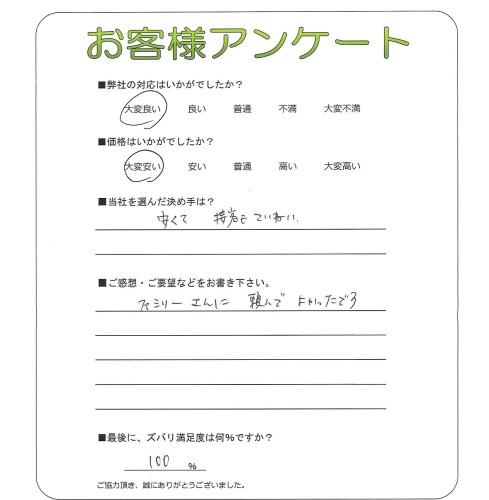 お客様アンケート
■弊社の対応はいかがでしたか？
大変良い 良い 普通 不満 大変不満
■価格はいかがでしたか？
大変安い 安い 普通 高い 大変高い
■当社を選んだ決め手は？
安くて 接客もていねい
■ご感想・ご要望などをお書き下さい。
ファミリーさんに 頼んで よかったです
■最後に、ズバリ満足度は何%ですか？
100 %
ご協力頂き、誠にありがとうございました。